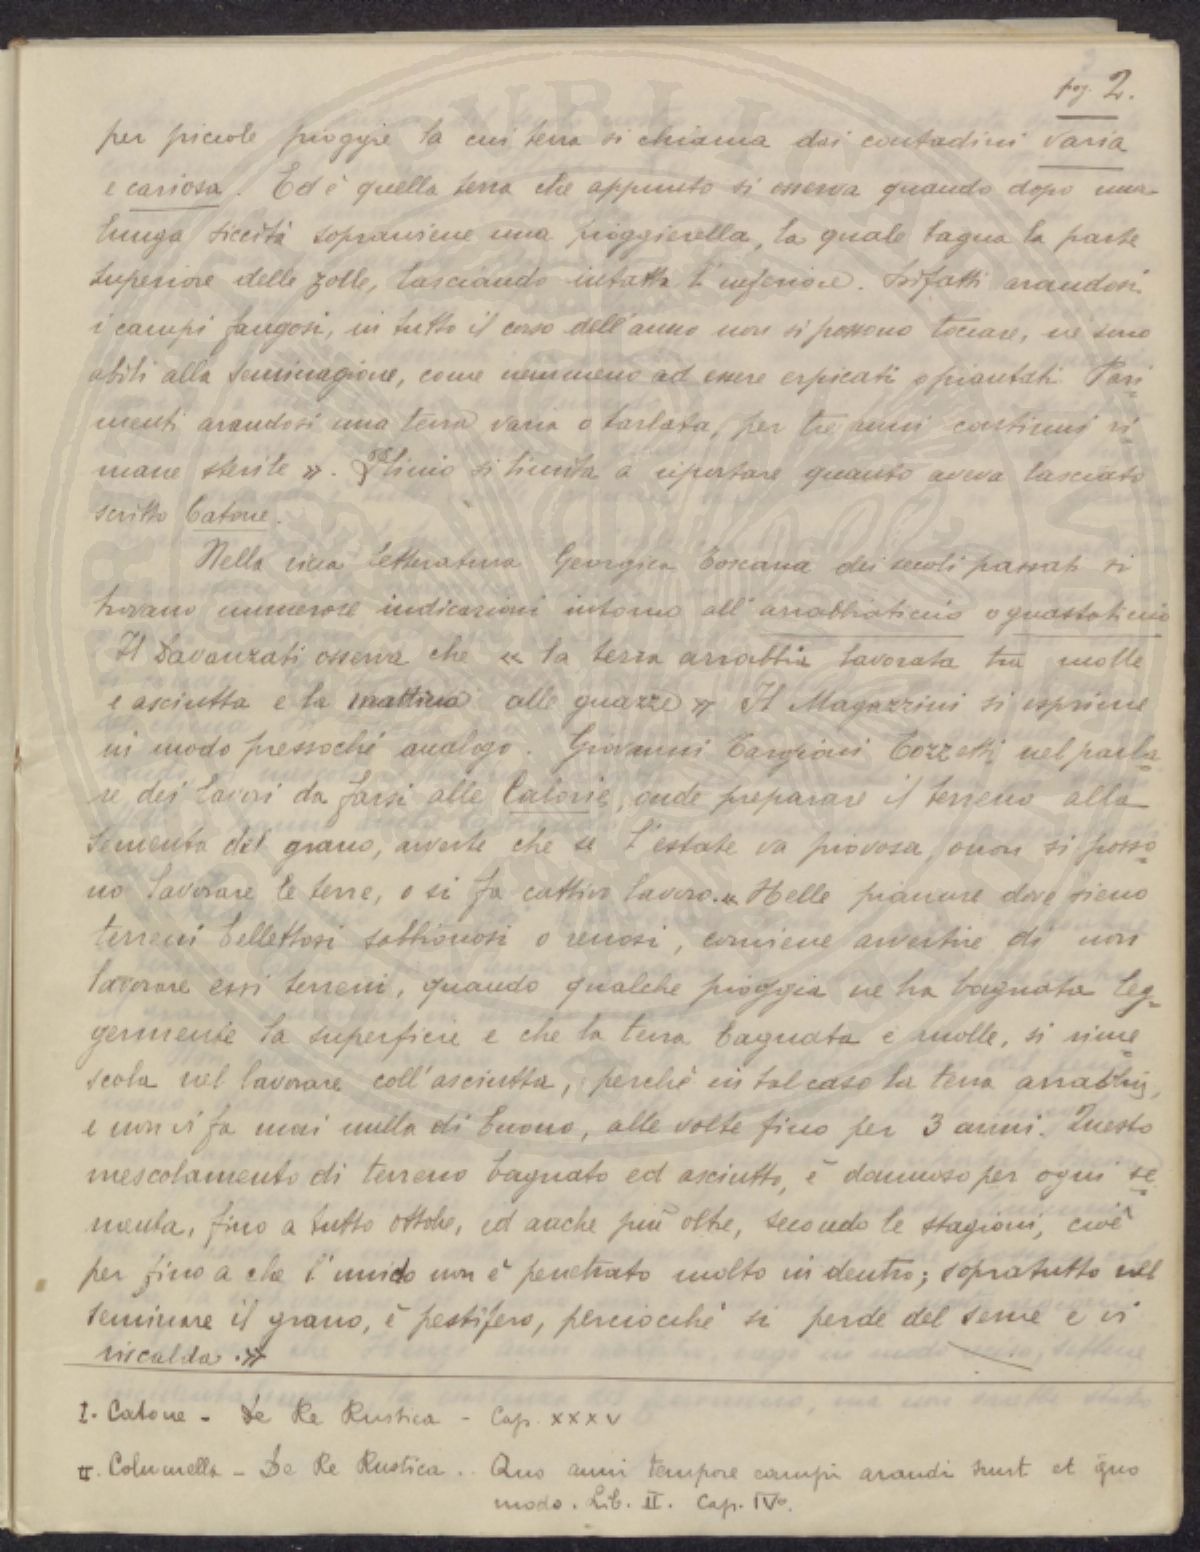 pag. 2.
per piccole pioggie la cui terra si chiama dai contadini varia
e cariosa. Ed è quella terra che appunto si osserva quando dopo una
lunga siccità sopraviene una pioggierella, la quale bagna la parte
superiore delle zolle, lasciando intatta l'inferiore. Difatti arandosi
i campi fangosi, in tutto il corso dell'anno non si possono toccare, nè sono
abili alla seminagione, come nemmeno ad essere erpicati o piantati. Pari-
menti arandosi una terra varia o tarlata, per tre anni continui ri-
mane sterile ». Plinio si limita a riportare quanto aveva lasciato
scritto Catone.
Nella ricca letteratura Georgica Toscana dei secoli passati si
trovano numerose indicazioni intorno all'arrabbiaticcio o guastaticcio
Il Davanzati osserva che « la terra arrabbia lavorata tra molle
e asciutta e la mattina alle guazze » Il Magazzini si esprime
in modo pressochè analogo. Giovanni Targioni Tozzetti nel parla-
re dei lavori da farsi alle Calorie, onde preparare il terreno alla
sementa del grano, avverte che se l'estate va piovosa, o non si posso-
no lavorare le terre, o si fa cattivo lavoro. « Nelle pianure dove sieno
terreni bellettosi sabbionosi o renosi, conviene avvertire di non
lavorare essi terreni, quando qualche pioggia ne ha bagnata leg-
germente la superficie e che la terra bagnata e molle, si rime-
scola nel lavorare coll'asciutta, perchè in tal caso la terra arrabbia,
e non vi fa mai nulla di buono, alle volte fino per 3 anni. Questo
mescolamento di terreno bagnato ed asciutto, è dannoso per ogni se-
menta, fino a tutto ottobre, ed anche più oltre, secondo le stagioni, cioè
per fino a che l'umido non è penetrato molto in dentro; sopratutto nel
seminare il grano, è pestifero, perciocchè si perde del seme e vi
riscalda. »
I. Catone - De Re Rustica - Cap. XXXV
II. Columella - De Re Rustica. Quo anni tempore campi arandi sunt et quo
modo. Lib. II. Cap. IV°.